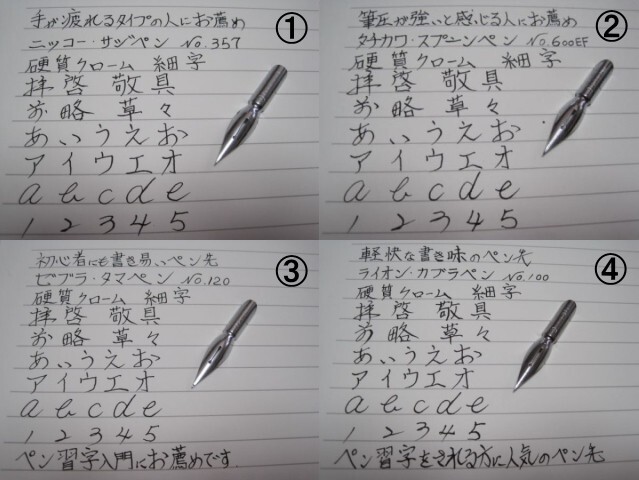 ①
手が疲れるタイプの人にお薦め
ニッコー・サジペン No.357
硬質クローム 細字
拝啓 敬具
前略 草々
あいうえお
アイウエオ
a b c d e
1 2 3 4 5
②
筆圧が強いと感じる人にお薦め
タチカワ・スプーンペン No.600EF
硬質クローム 細字
拝啓 敬具
前略 草々
あいうえお
アイウエオ
a b c d e
1 2 3 4 5
③
初心者にも書き易いペン先
ゼブラ・タマペン No.120
硬質クローム 細字
拝啓 敬具
前略 草々
あいうえお
アイウエオ
a b c d e
1 2 3 4 5
ペン習字入門にお薦めです.
④
軽快な書き味のペン先
ライオン・カブラペン No.100
硬質クローム 細字
拝啓 敬具
前略 草々
あいうえお
アイウエオ
a b c d e
1 2 3 4 5
ペン習字をされる方に人気のペン先